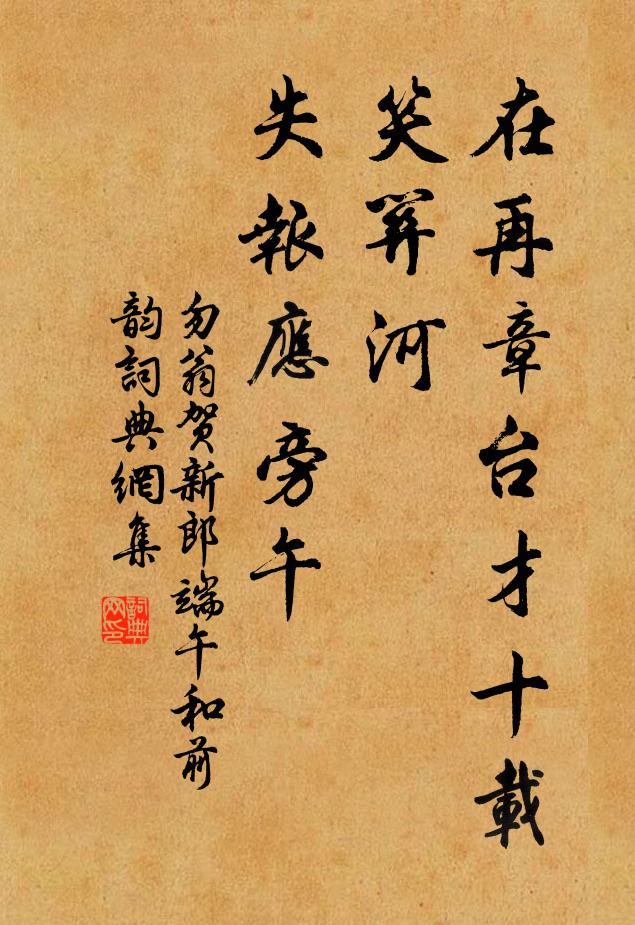 在再章台才十載
笑羿河
失報應旁午
勿翁贺新郎端午和前
韵詞典網集
詞典
网印